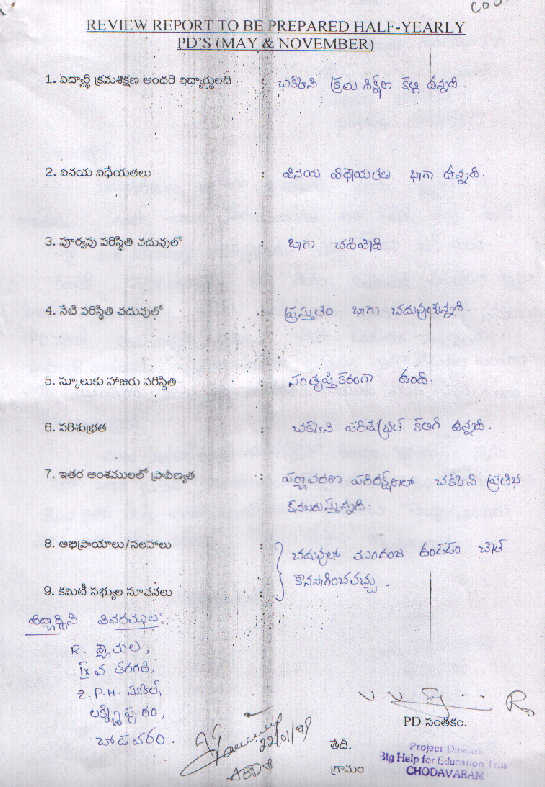 REVIEW REPORT TO BE PREPARED HALF-YEARLY
PD'S (MAY & NOVEMBER)
1. విద్యార్థి క్రమశిక్షణ అందరి విద్యార్థులతో : చక్కని క్రమ శిక్షణ కల్గి ఉన్నది.
2. వినయ విధేయతలు : వినయ విధేయతలు బాగా ఉన్నది.
3. పూర్వపు పరిస్థితి చదువులో : బాగా చదివేది
4. నేటి పరిస్థితి చదువులో : ప్రస్తుతం బాగా చదువుతున్నది
5. స్కూలుకు హాజరు పరిస్థితి : సంతృప్తికరంగా ఉంది.
6. పరిశుభ్రత : చక్కని పరిశుభ్రత కలిగి ఉన్నది.
7. ఇతర అంశములలో ప్రావీణ్యత : పర్యావరణ పరిరక్షణలో చక్కని ప్రతిభ
కనబరుస్తున్నది.
8. అభిప్రాయాలు/సలహాలు
చదువులో ముందంజ ఉండటం చేత
కొనసాగించవచ్చు.
9. కమిటీ సభ్యుల సూచనలు
విద్యార్థిని వివరములు:
R. శ్యామల,
IX వ తరగతి,
Z.P.H. స్కూల్,
లక్ష్మీపురం,
22/01/09
PD సంతకం.
తేది.
గ్రామం
Project Director
Big Help for Education Trust
CHODAVARAM